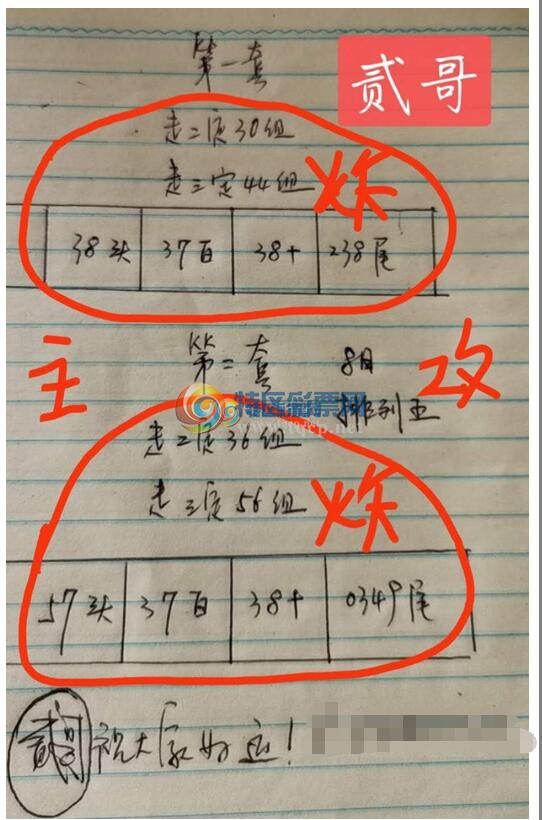 贰哥
第一套
走二定30组
走三定44组
炸
38头 37百 38十 238尾
主攻
第二套 8日
排列五
特区彩票网
走二定36组
走三定56组
炸
57头 37百 38十 0349尾
贰哥 祝大家好运!